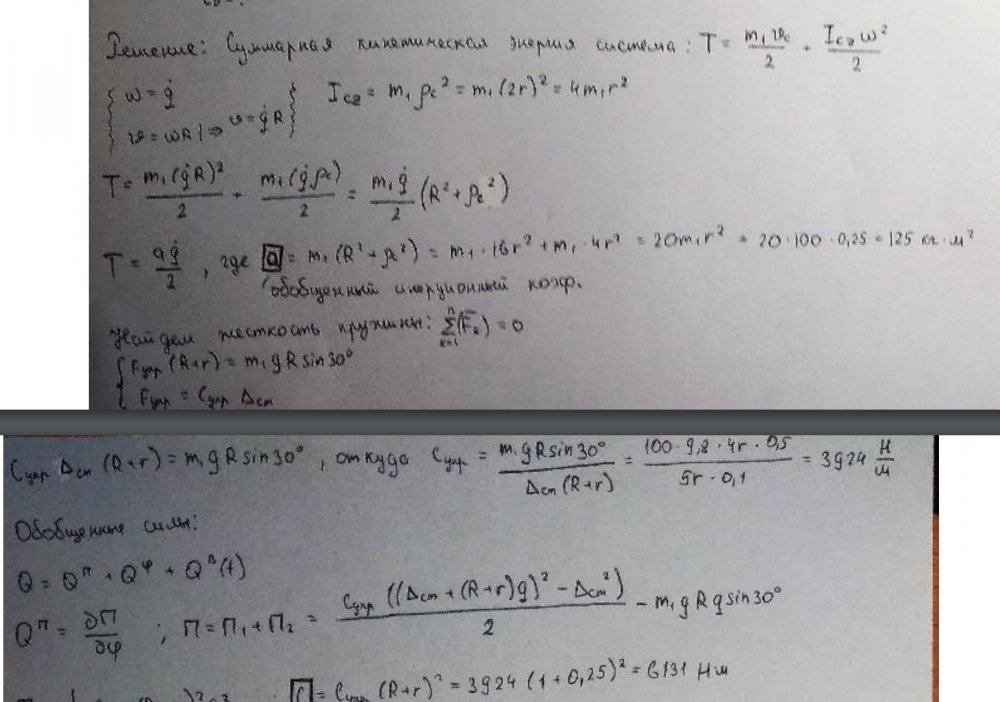 Решение: Суммарная кинетическая энергия система: T = m₁υc/2 + I_cz ω²/2
{ ω = q̇
υ = ωR | ⇒ υ = q̇R } I_cz = m₁ρc² = m₁(2r)² = 4m₁r²
T = m₁(q̇R)²/2 + m₁(q̇ρc)/2 = m₁q̇/2 (R² + ρc²)
T = aq̇/2, где a = m₁(R² + ρ²) = m₁·16r² + m₁·4r² = 20m₁r² = 20·100·0,25 = 125 кг·м²
обобщенный инерционный коэф.
Найдем жесткость пружины: ∑ₖ₌₁ⁿ(F̄ₖ) = 0
{ Fупр (R+r) = m₁gR sin30°
Fупр = Cупр Δст
Cупр Δст (R+r) = m₁gR sin30°, откуда Cупр = m₁gR sin30°/Δст(R+r) = 100·9,8·4r·0,5/5r·0,1 = 3924 Н/м
Обобщенные силы:
Q = Qᴨ + Qᵠ + Qᴮ(t)
Qᴨ = ∂П/∂φ ; П = П₁ + П₂ = Cупр ((Δст + (R+r)q)² − Δст²)/2 − m₁gRq sin30°
= Cупр (R+r)² = 3924 (1+0,25)² = 6131 Нм